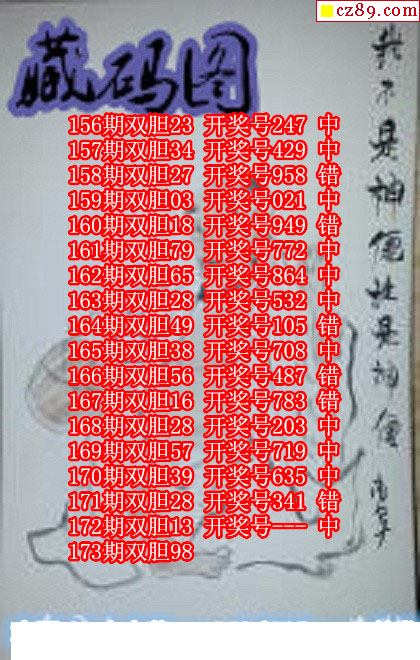 cz89.com
藏码图
156期双胆23 开奖号247 中
157期双胆34 开奖号429 中
158期双胆27 开奖号958 错
159期双胆03 开奖号021 中
160期双胆18 开奖号949 错
161期双胆79 开奖号772 中
162期双胆65 开奖号864 中
163期双胆28 开奖号532 中
164期双胆49 开奖号105 错
165期双胆38 开奖号708 中
166期双胆56 开奖号487 错
167期双胆16 开奖号783 错
168期双胆28 开奖号203 中
169期双胆57 开奖号719 中
170期双胆39 开奖号635 中
171期双胆28 开奖号341 错
172期双胆13 开奖号--- 中
173期双胆98
我不是神仙胜是神仙